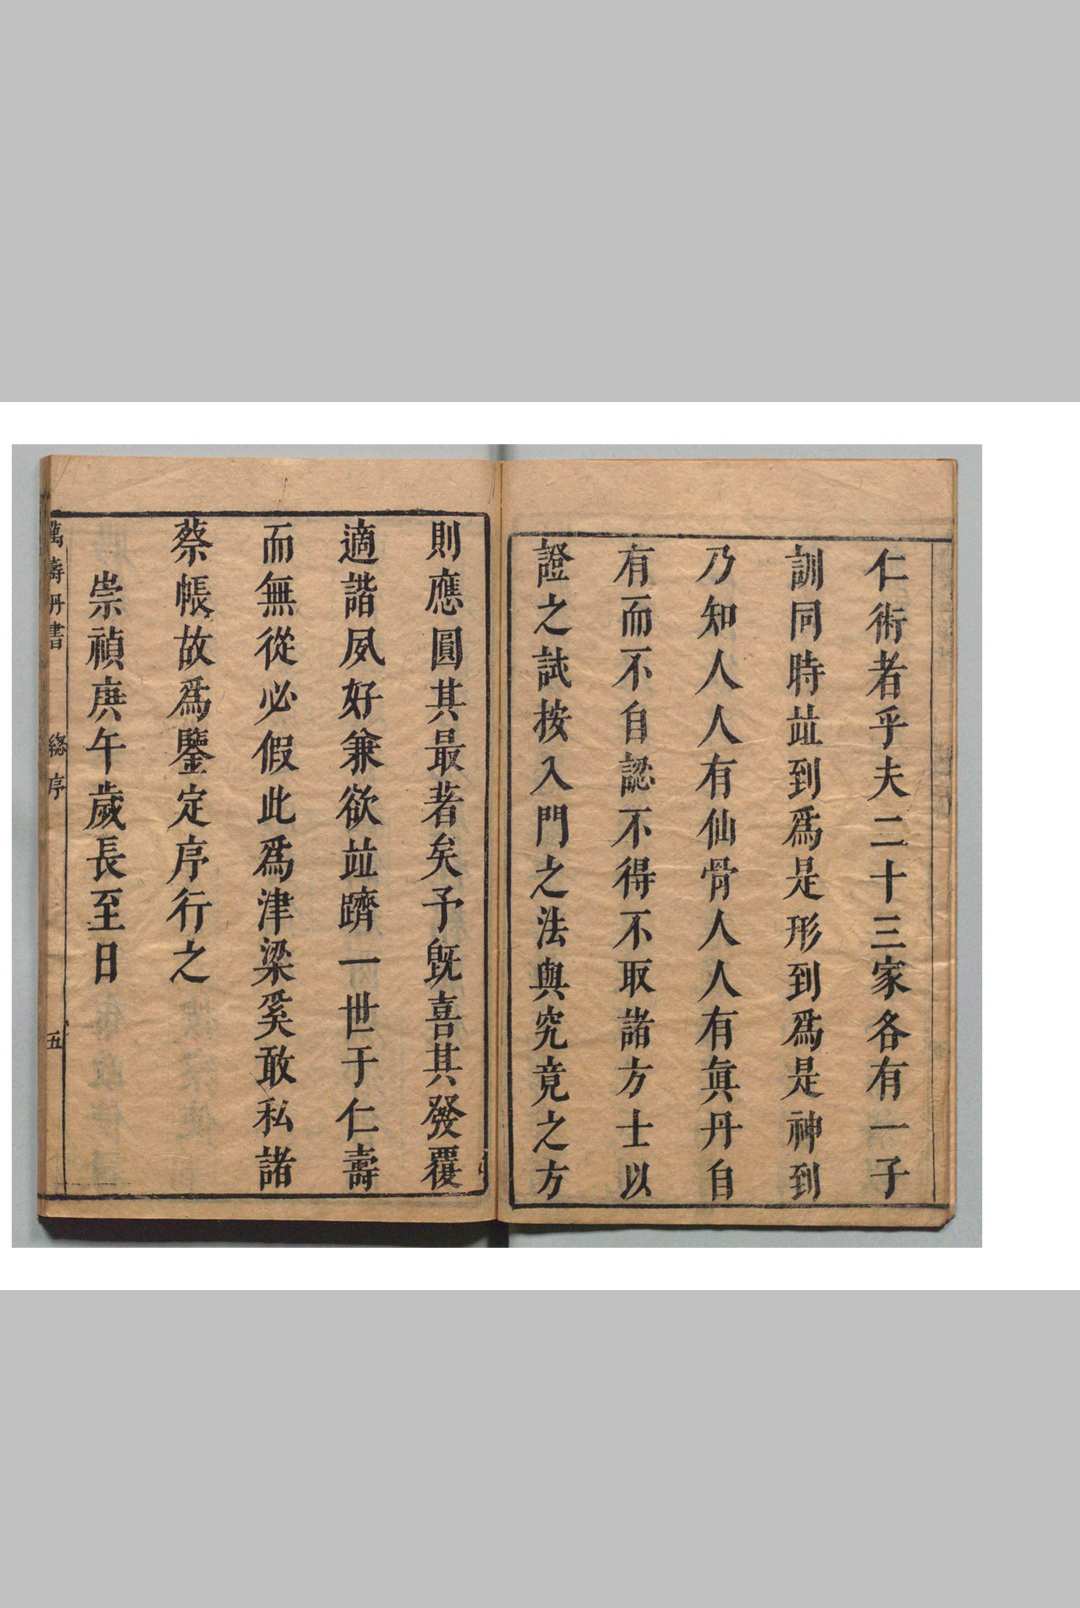 仁術者乎夫二十三家各有一子
訓同時並到爲是形到爲是神到
乃知人人有仙骨人人有眞丹自
有而不自認不得不取諸方士以
證之試按入門之法與究竟之方
則應圓其最著矣予旣喜其發覆
適諧夙好兼欲並躋一世于仁壽
而無從必假此爲津梁奚敢私諸
蔡帳故爲鑒定序行之
崇禎庚午歲長至日
萬壽丹書 總序 五